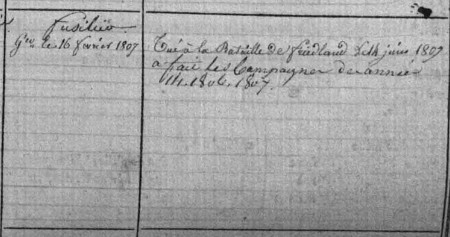 fusilier
Gre. le 16 février 1807
Tué à la Bataille de friedland Le 14 juin 1807
a fait les Campagnes des année
14. 1806. 1807.